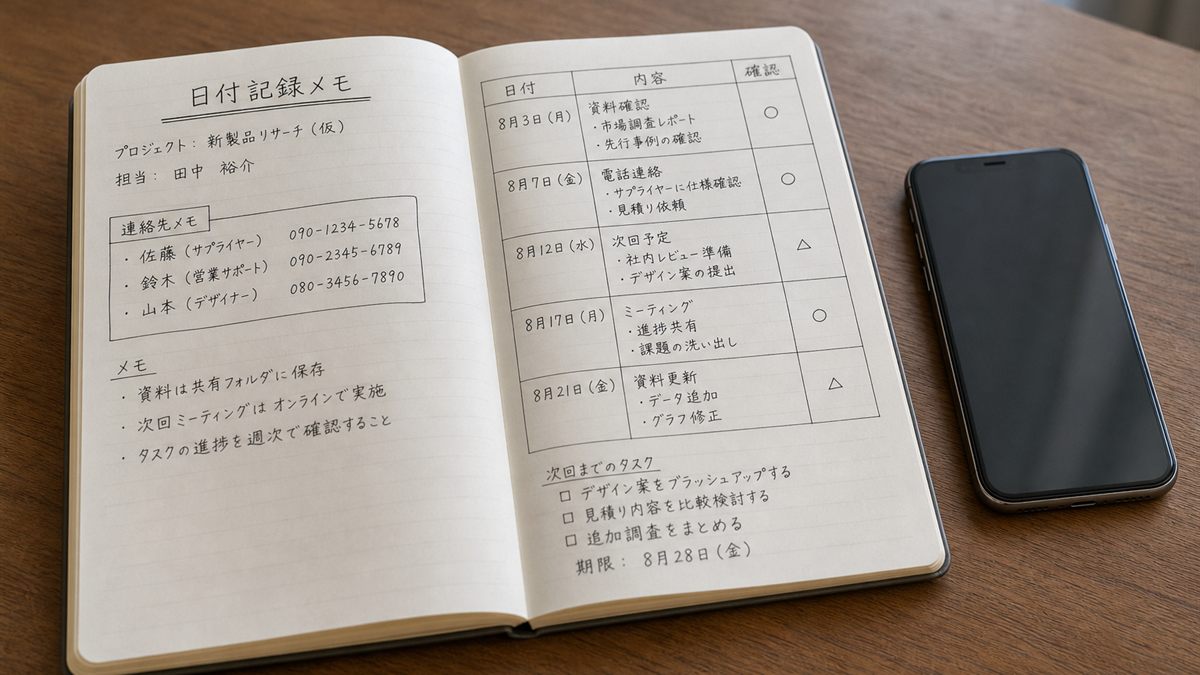 日付記録メモ
プロジェクト: 新製品リサーチ (仮)
担当: 田中 裕介
連絡先メモ
・佐藤 (サプライヤー) 090-1234-5678
・鈴木 (営業サポート) 090-2345-6789
・山本 (デザイナー) 080-3456-7890
メモ
・資料は共有フォルダに保存
・次回ミーティングはオンラインで実施
・タスクの進捗を週次で確認すること
日付 内容 確認
8月3日(月) 資料確認 ○
・市場調査レポート
・先行事例の確認
8月7日(金) 電話連絡 ○
・サプライヤーに仕様確認
・見積り依頼
8月12日(水) 次回予定 △
・社内レビュー準備
・デザイン案の提出
8月17日(月) ミーティング ○
・進捗共有
・課題の洗い出し
8月21日(金) 資料更新 △
・データ追加
・グラフ修正
次回までのタスク
□ デザイン案をブラッシュアップする
□ 見積り内容を比較検討する
□ 追加調査をまとめる
期限: 8月28日(金)